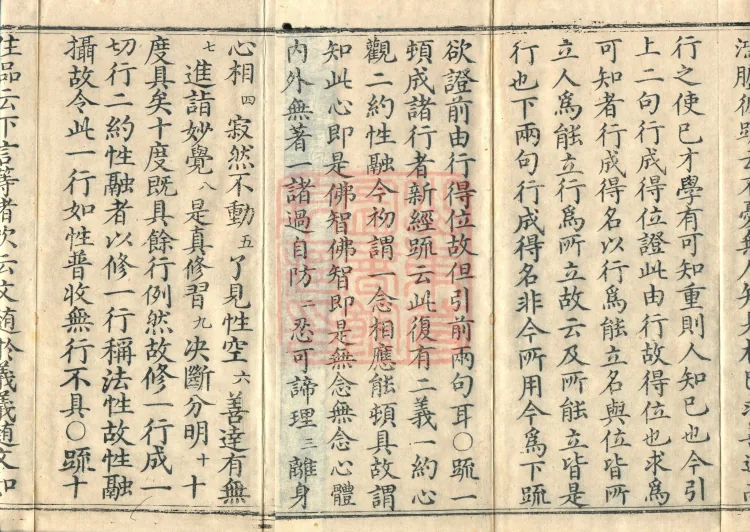 行之使已才學有可知重則人知已也今引
上二句行成得位證此由行故得位也求爲
可知者行成得名以行爲能立名與位皆所
立人爲能立行爲所立故云及所能立皆是
行也下兩句行成得名非今所用今爲下䟽
欲證前由行得位故但引前兩句耳〇䟽一
頓成諸行者新經䟽云此復有二義一約心
觀二約性融今初謂一念相應能頓具故謂
知此心即是佛智佛智即是無念無念心體
內外無著一諸過自防二忍可諦理三離身
心相四寂然不動五了見性空六善達有無
七進詣妙覺八是真修習九决斷分明十十
度具矣十度既具餘行例然故修一行成一
切行二約性融者以修一行稱法性故性融
攝故令此一行如性普收無行不具〇䟽十
住品云下言等者次云文随於義義随文如